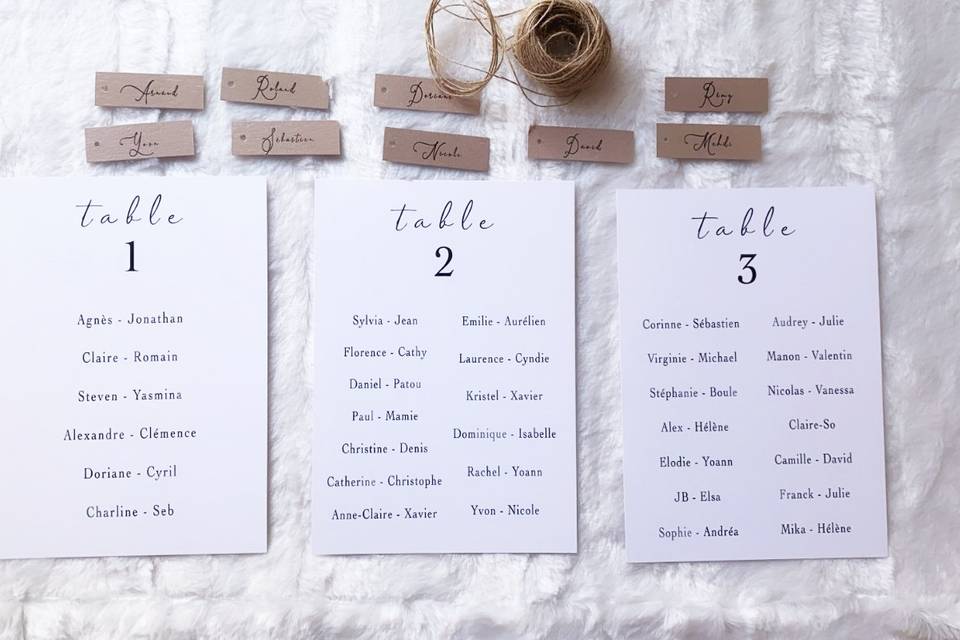 Arnaud
Roland
Doriane
Rémy
Yann
Sébastien
Nicole
David
Mehdi
table
1
Agnès - Jonathan
Claire - Romain
Steven - Yasmina
Alexandre - Clémence
Doriane - Cyril
Charline - Seb
table
2
Sylvia - Jean
Florence - Cathy
Daniel - Patou
Paul - Mamie
Christine - Denis
Catherine - Christophe
Anne-Claire - Xavier
Emilie - Aurélien
Laurence - Cyndie
Kristel - Xavier
Dominique - Isabelle
Rachel - Yoann
Yvon - Nicole
table
3
Corinne - Sébastien
Virginie - Michael
Stéphanie - Boule
Alex - Hélène
Elodie - Yoann
JB - Elsa
Sophie - Andréa
Audrey - Julie
Manon - Valentin
Nicolas - Vanessa
Claire-So
Camille - David
Franck - Julie
Mika - Hélène